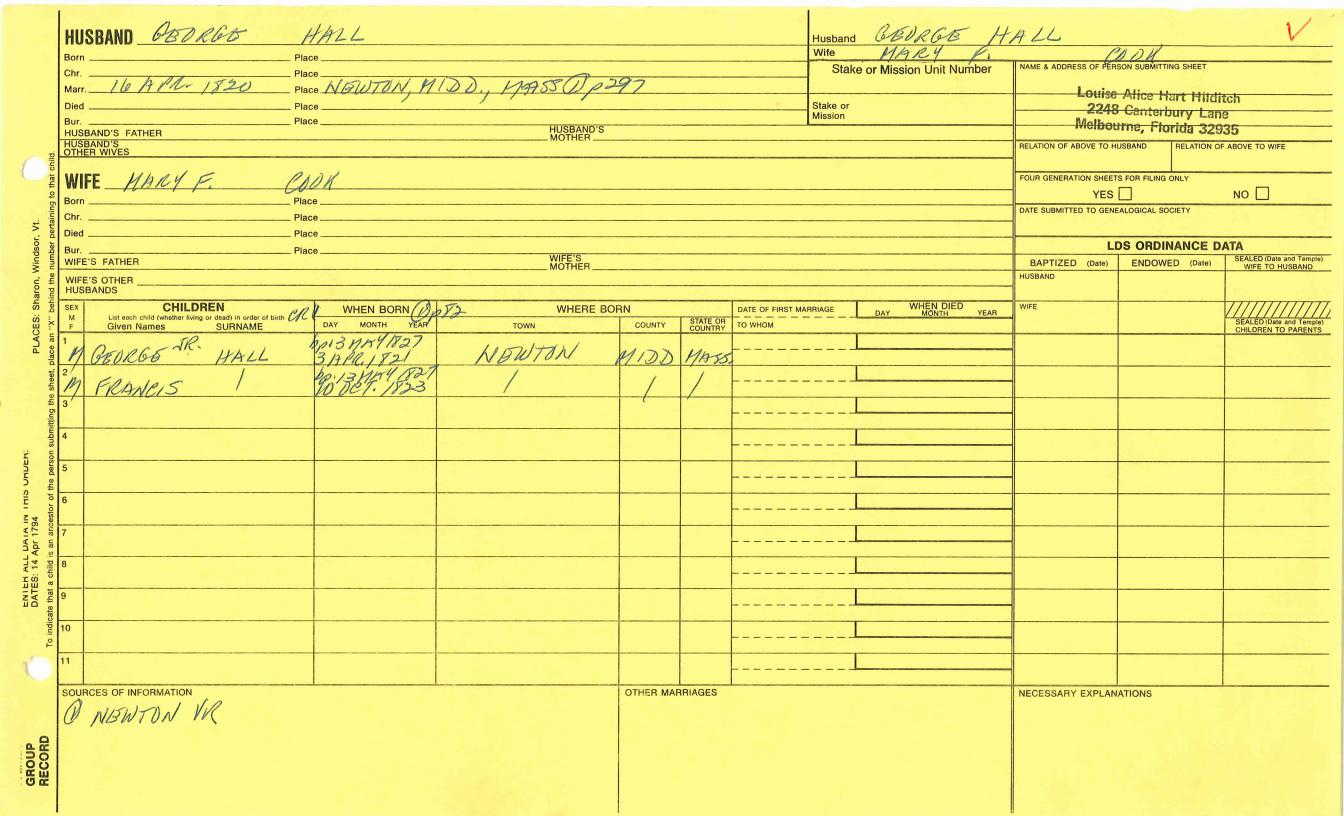 HUSBAND GEORGE HALL
Born Place
Chr. Place
Marr. 16 APR. 1820 Place NEWTON, MIDD., MASS ① p297
Died Place
Bur. Place
HUSBAND'S FATHER HUSBAND'S MOTHER
HUSBAND'S OTHER WIVES
Husband GEORGE HALL
Wife MARY F. COOK
Stake or Mission Unit Number
Stake or Mission
NAME & ADDRESS OF PERSON SUBMITTING SHEET
Louise Alice Hart Hilditch
2248 Canterbury Lane
Melbourne, Florida 32935
RELATION OF ABOVE TO HUSBAND RELATION OF ABOVE TO WIFE
FOUR GENERATION SHEETS FOR FILING ONLY
YES NO
DATE SUBMITTED TO GENEALOGICAL SOCIETY
WIFE MARY F. COOK
Born Place
Chr. Place
Died Place
Bur. Place
WIFE'S FATHER WIFE'S MOTHER
WIFE'S OTHER HUSBANDS
LDS ORDINANCE DATA
BAPTIZED (Date) ENDOWED (Date) SEALED (Date and Temple) WIFE TO HUSBAND
HUSBAND
WIFE
SEALED (Date and Temple) CHILDREN TO PARENTS
SEX M F
CHILDREN CR1
List each child (whether living or dead) in order of birth
Given Names SURNAME
WHEN BORN ① p82
DAY MONTH YEAR
WHERE BORN
TOWN COUNTY STATE OR COUNTRY
DATE OF FIRST MARRIAGE
TO WHOM
WHEN DIED
DAY MONTH YEAR
1 M GEORGE JR. HALL bp 13 MAY 1827
3 APR. 1821 NEWTON MIDD MASS.
2 M FRANCIS / bp. 13 MAY 1827
10 OCT. 1823 / / /
3
4
5
6
7
8
9
10
11
SOURCES OF INFORMATION
① NEWTON VR
OTHER MARRIAGES
NECESSARY EXPLANATIONS
PLACES: Sharon, Windsor, Vt.
To indicate that a child is an ancestor of the person submitting the sheet, place an "X" behind the number pertaining to that child.
ENTER ALL DATA IN THIS ORDER:
DATES: 14 Apr 1794
GROUP
RECORD